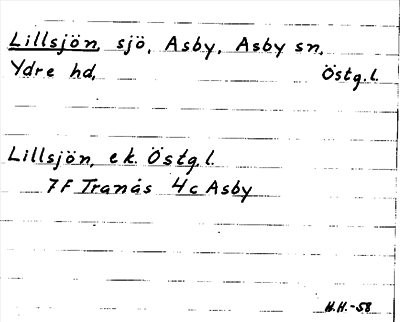 Lillsjön, sjö, Asby, Asby sn,
Ydre hd, Östg.l.
Lillsjön, ek. Östg.l.
7F Tranås 4c Asby
H.H.-58